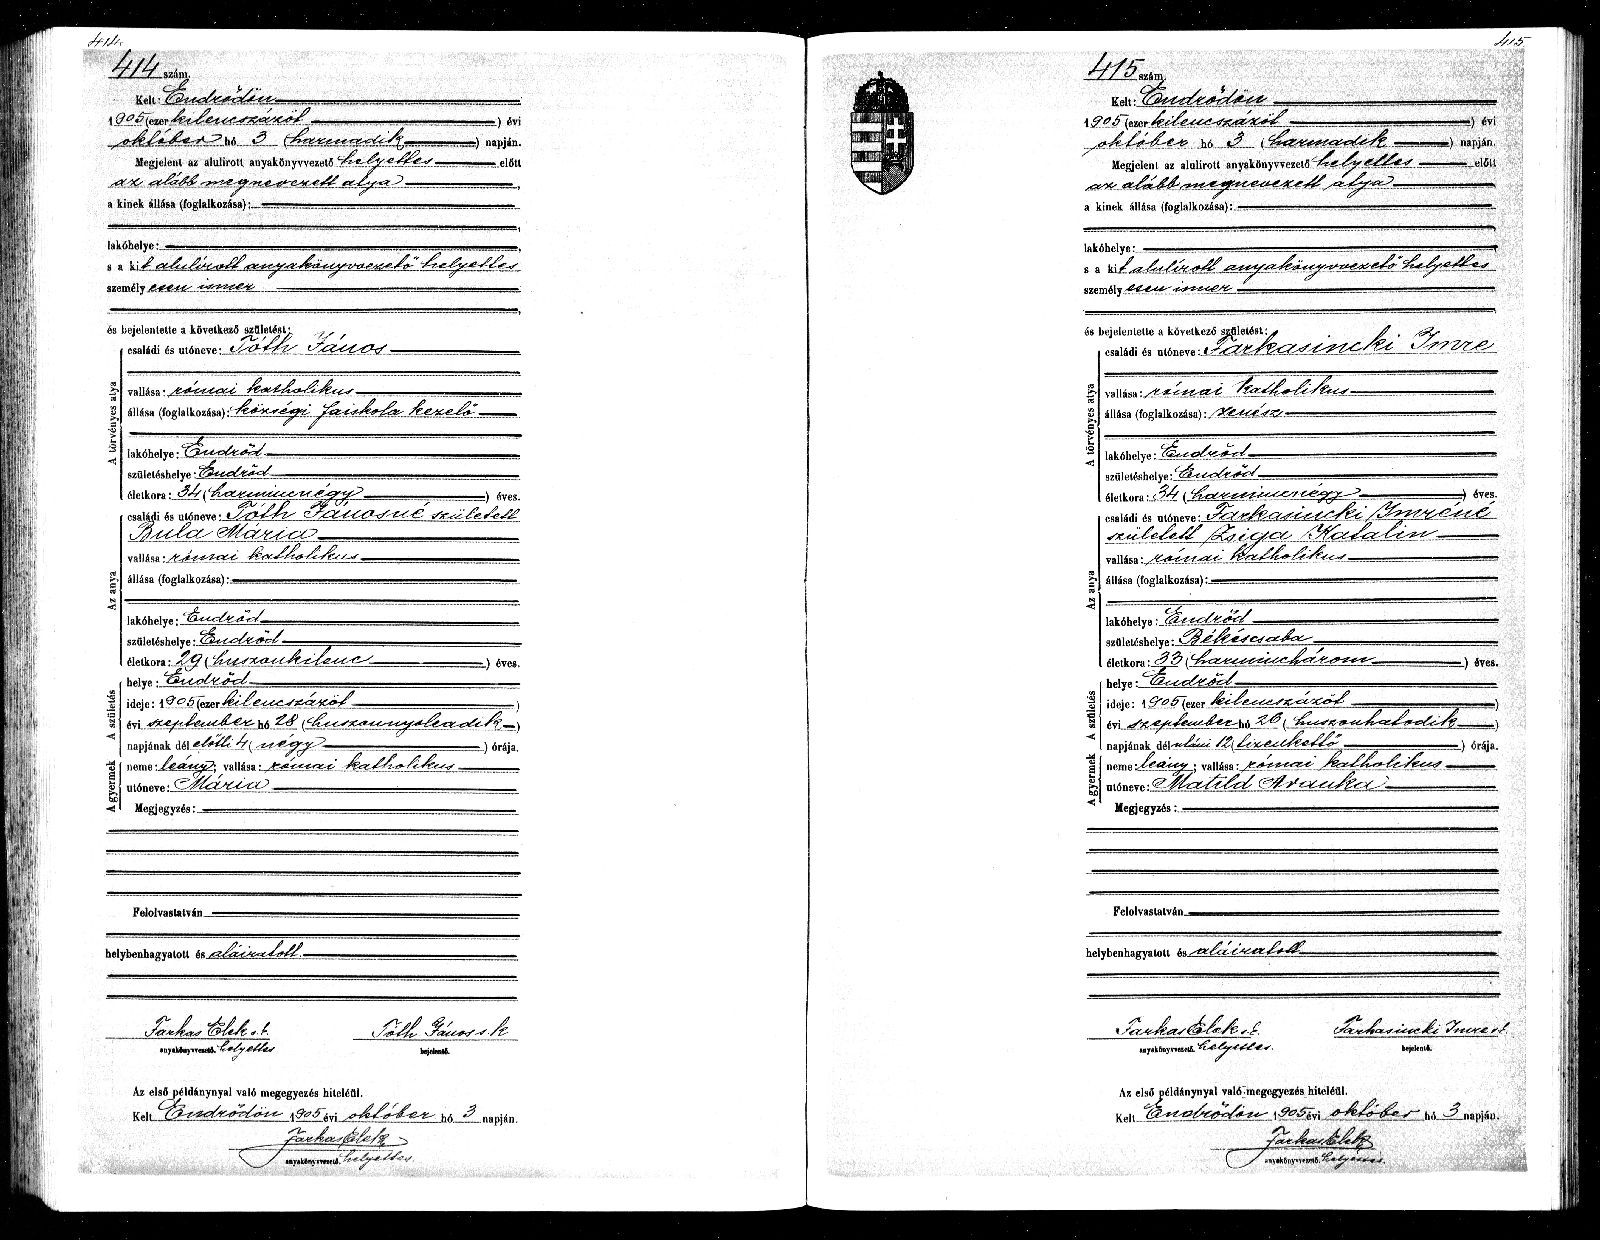 414.
414 szám.
Kelt: Endrődön
1905 (ezer kilencszázöt ) évi
október hó 3 (harmadik ) napján.
Megjelent az alulirott anyakönyvvezető helyettes előtt
az alább megnevezett atya ,
a kinek állása (foglalkozása):
lakóhelye:
s a kit alulírott anyakönyvvezető helyettes
személyesen ismer
és bejelentette a következő születést:
A törvényes atya
családi és utóneve: Tóth János
vallása: római katholikus
állása (foglalkozása): községi faiskola kezelő
lakóhelye: Endrőd
születéshelye: Endrőd
életkora: 34 (harmincnégy ) éves.
Az anya
családi és utóneve: Tóth Jánosné született
Bula Mária
vallása: római katholikus
állása (foglalkozása):
lakóhelye: Endrőd
születéshelye: Endrőd
életkora: 29 (huszonkilenc ) éves.
A születés
helye: Endrőd
ideje: 1905 (ezer kilencszázöt )
évi szeptember hó 28 (huszonnyolcadik )
napjának dél előtti 4 (négy ) órája.
A gyermek
neme: leány; vallása: római katholikus
utóneve: Mária
Megjegyzés:
Felolvastatván
helybenhagyatott és aláiratott
Farkas Elek s.k. Tóth János s.k.
anyakönyvvezető. helyettes bejelentő.
Az első példánynyal való megegyezés hiteléül.
Kelt Endrődön 1905 évi október hó 3 napján.
Farkas Elek
anyakönyvvezető. helyettes.
415
415 szám.
Kelt: Endrődön
1905 (ezer kilencszázöt ) évi
október hó 3 (harmadik ) napján.
Megjelent az alulirott anyakönyvvezető helyettes előtt
az alább megnevezett atya ,
a kinek állása (foglalkozása):
lakóhelye:
s a kit alulírott anyakönyvvezető helyettes
személyesen ismer
és bejelentette a következő születést:
A törvényes atya
családi és utóneve: Farkasincki Imre
vallása: római katholikus
állása (foglalkozása): zenész
lakóhelye: Endrőd
születéshelye: Endrőd
életkora: 34 (harmincnégy ) éves.
Az anya
családi és utóneve: Farkasincki Imréné
született Zsiga Katalin
vallása: római katholikus
állása (foglalkozása):
lakóhelye: Endrőd
születéshelye: Békéscsaba
életkora: 33 (harminchárom ) éves.
A születés
helye: Endrőd
ideje: 1905 (ezer kilencszázöt )
évi szeptember hó 26 (huszonhatodik )
napjának dél utáni 12 (tizenkettő ) órája.
A gyermek
neme: leány; vallása: római katholikus
utóneve: Matild Aranka
Megjegyzés:
Felolvastatván
helybenhagyatott és aláiratott
Farkas Elek s.k. Farkasincki Imre s.k.
anyakönyvvezető. helyettes. bejelentő.
Az első példánynyal való megegyezés hiteléül.
Kelt Endrődön 1905 évi október hó 3 napján.
Farkas Elek
anyakönyvvezető. helyettes.